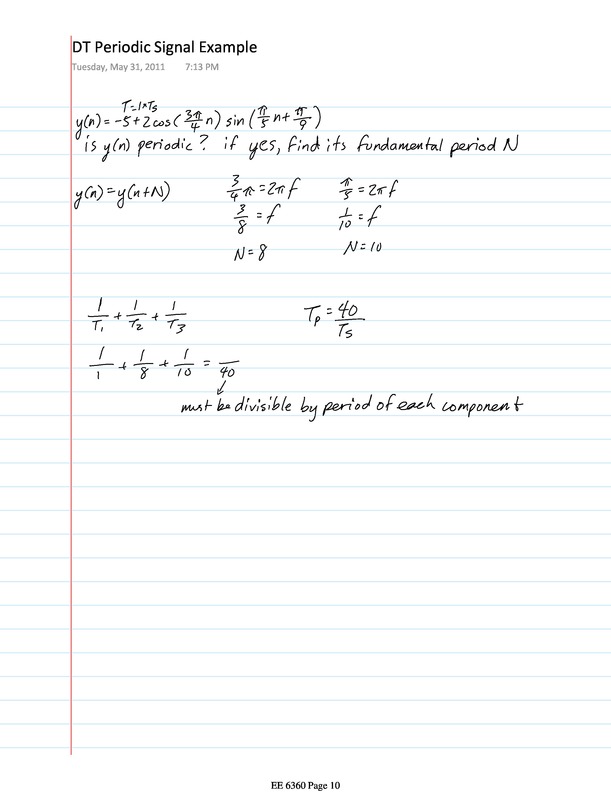 DT Periodic Signal Example
Tuesday, May 31, 2011 7:13 PM
T=1*Ts
y(n) = -5+2cos(3π/4 n) sin(π/5 n+π/9)
is y(n) periodic? if yes, find its fundamental period N
y(n)=y(n+N) 3/4 π=2πf π/5=2πf
3/8=f 1/10=f
N=8 N=10
1/T1 + 1/T2 + 1/T3 Tp=40/Ts
1/1 + 1/8 + 1/10 = /40
must be divisible by period of each component
EE 6360 Page 10